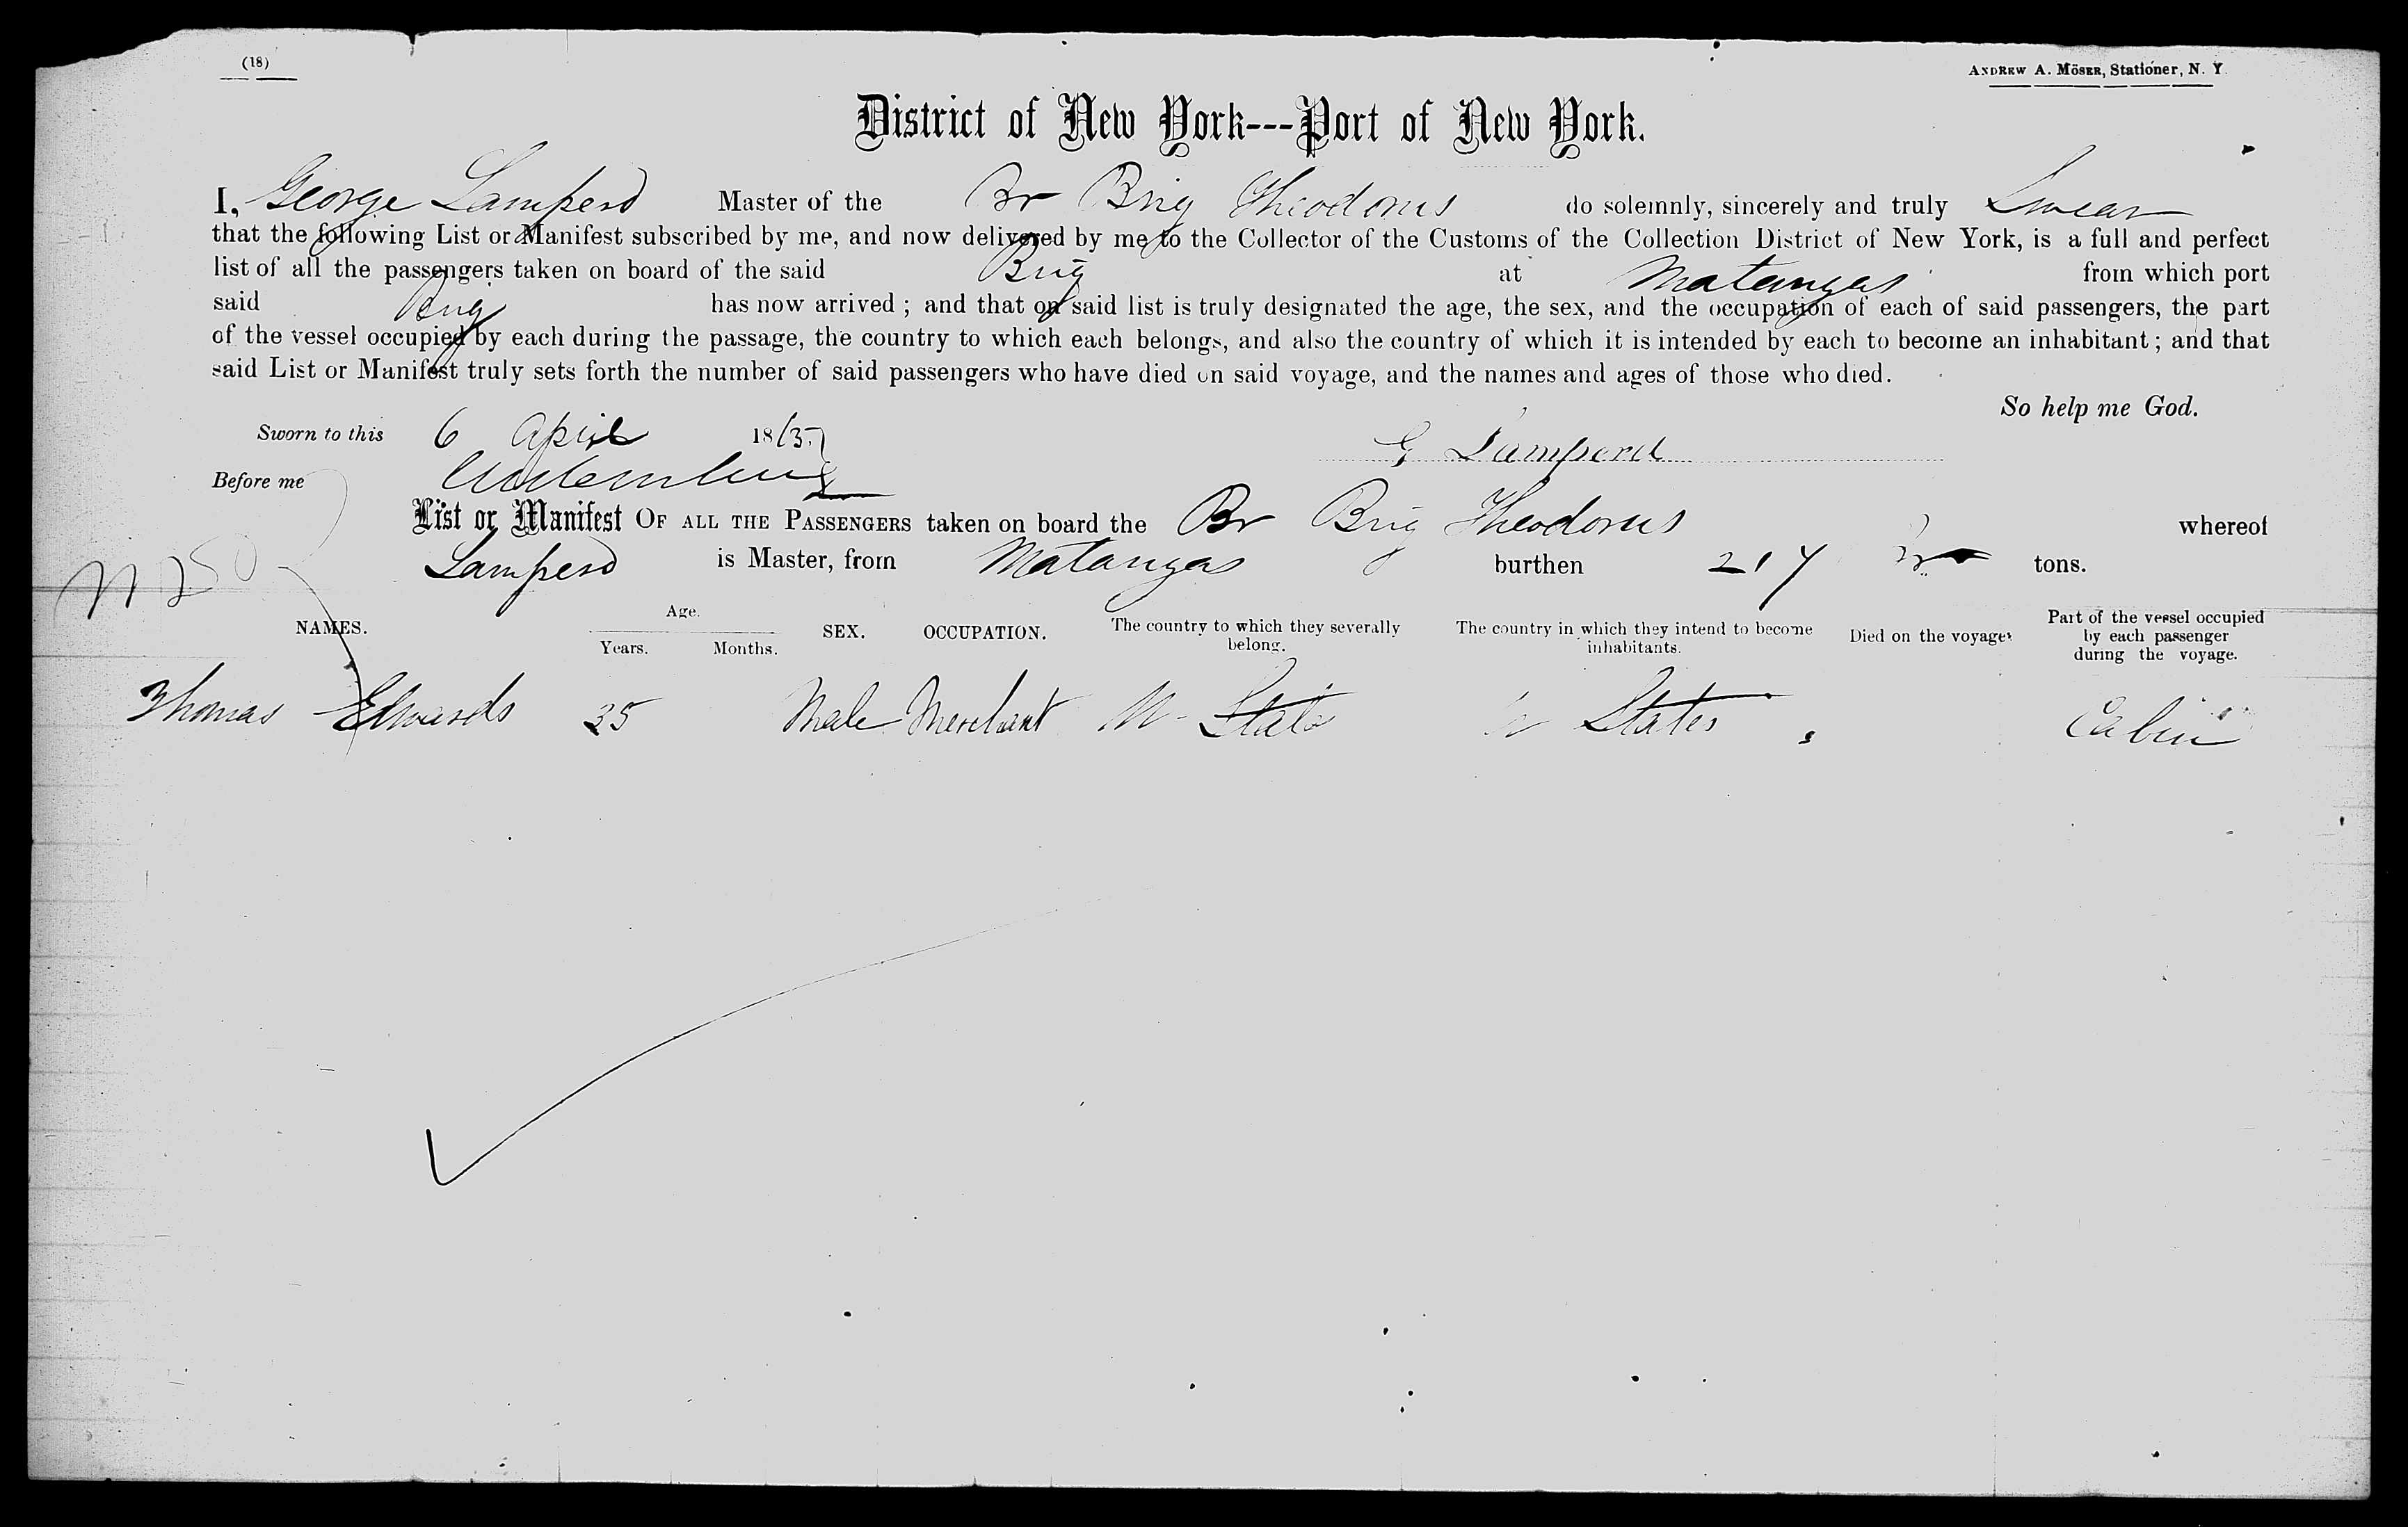 (18)
ANDREW A. MÖSER, Stationer, N. Y.
District of New York---Port of New York.
I, George Lamperd Master of the Br Brig Theodorus do solemnly, sincerely and truly Swear
that the following List or Manifest subscribed by me, and now delivered by me to the Collector of the Customs of the Collection District of New York, is a full and perfect
list of all the passengers taken on board of the said Brig at Matanzas from which port
said Brig has now arrived ; and that on said list is truly designated the age, the sex, and the occupation of each of said passengers, the part
of the vessel occupied by each during the passage, the country to which each belongs, and also the country of which it is intended by each to become an inhabitant ; and that
said List or Manifest truly sets forth the number of said passengers who have died on said voyage, and the names and ages of those who died.
So help me God.
Sworn to this 6 April 1865
G Lamperd
Before me
List or Manifest OF ALL THE PASSENGERS taken on board the Br Brig Theodorus whereof
Lamperd is Master, from Matanzas burthen 217 tons.
NAMES. Age. Years. Months. SEX. OCCUPATION. The country to which they severally belong. The country in which they intend to become inhabitants. Died on the voyage. Part of the vessel occupied by each passenger during the voyage.
Thomas Edwards 35 Male Merchant U States U States Cabin